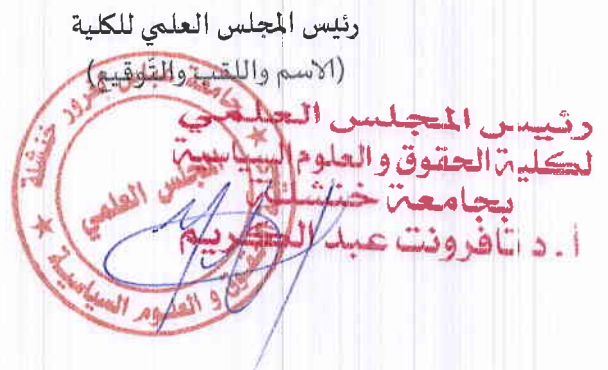 رئيس المجلس العلمي للكلية
(الاسم واللقب والتَّوقيع)
رئيس المجلس العلمي
لكلية الحقوق والعلوم السياسية
بجامعة خنشلة
أ. د تافرونت عبد الكريم
جامعة عباس لغرور خنشلة
المجلس العلمي
الحقوق و العلوم السياسية